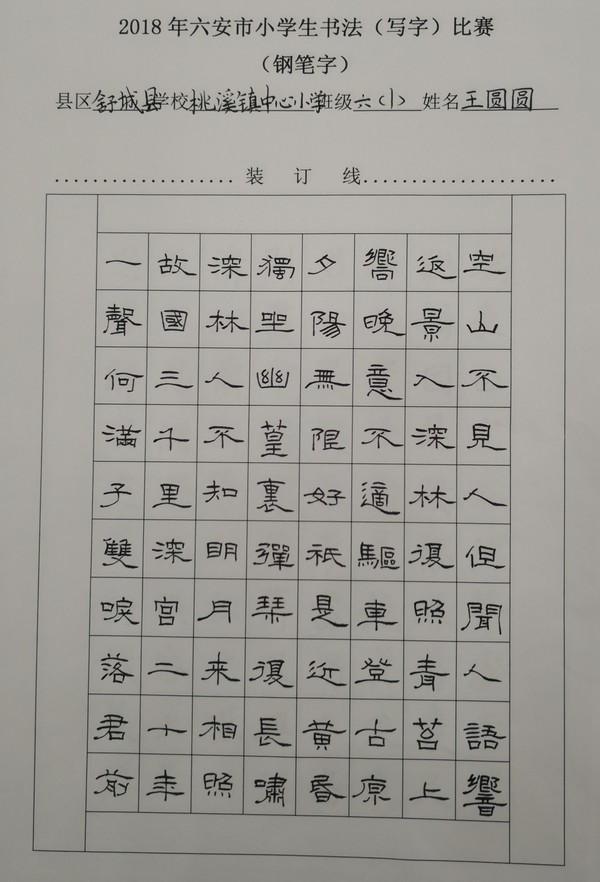 2018年六安市小学生书法（写字）比赛
（钢笔字）
县区舒城县学校桃溪镇中心小学班级六（1）姓名王圆圆
装 订 线
空山不見人但聞人語響
返景入深林復照青苔上
嚮晚意不適驅車登古原
夕陽無限好祇是近黃昏
獨坐幽篁裏彈琴復長嘯
深林人不知明月来相照
故國三千里深宮二十年
一聲何滿子雙淚落君前